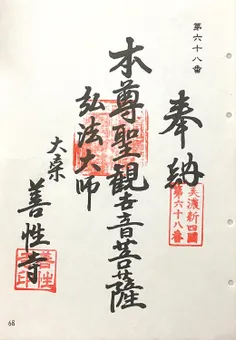 第六十八番
奉納
美濃新四國
第六十八番
本尊聖観世音菩薩
弘法大師
大桑
善性寺
68